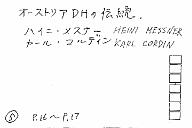 オーストリアDHの伝統.
ハイニ・メスナー HEINI MESSNER
カール・コルディン KARL CORDIN
⑤ P.26〜P.27